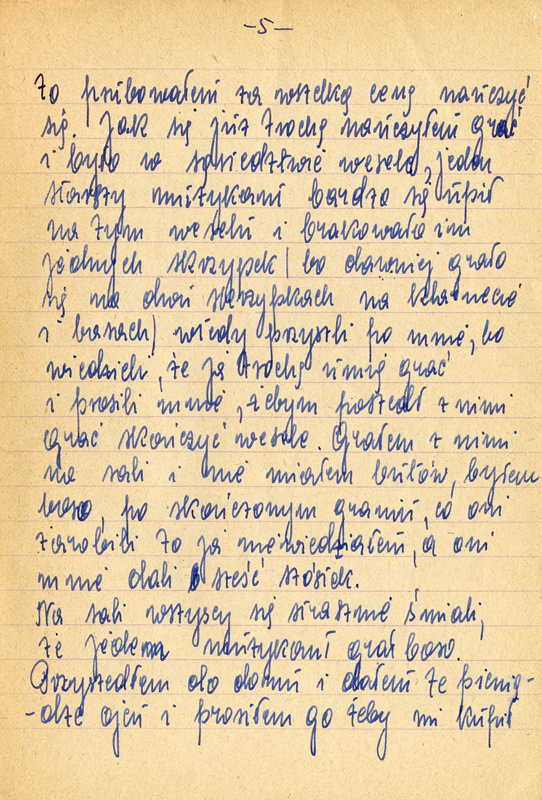 -5-
to prubowałem za wszelką cenę nauczyć
się. Jak się już trochę nauczyłem grać
i było w sąsiedztwie wesele, jeden
starszy muzykant bardzo się upił
na tym weselu i brakowało im
jednych skrzypek (bo dawniej grało
się na dwoi skrzypkach na klarnecie
i basach) wtedy przyszli po mnie, bo
wiedzieli, że ja trochę umię grać
i prosili mnie, żebym poszedł z nimi
grać skończyć wesele. Grałem z nimi
na sali i nie miałem butów, byłem
boso, po skończonym graniu, co oni
zarobili to ja niewiedziałem, a oni
mnie dali sześć szóstek.
Na sali wszyscy się strasznie śmiali,
że jeden muzykant grał boso.
Przyszedłem do domu i dałem te pienią-
-dze ojcu i prosiłem go żeby mi kupił